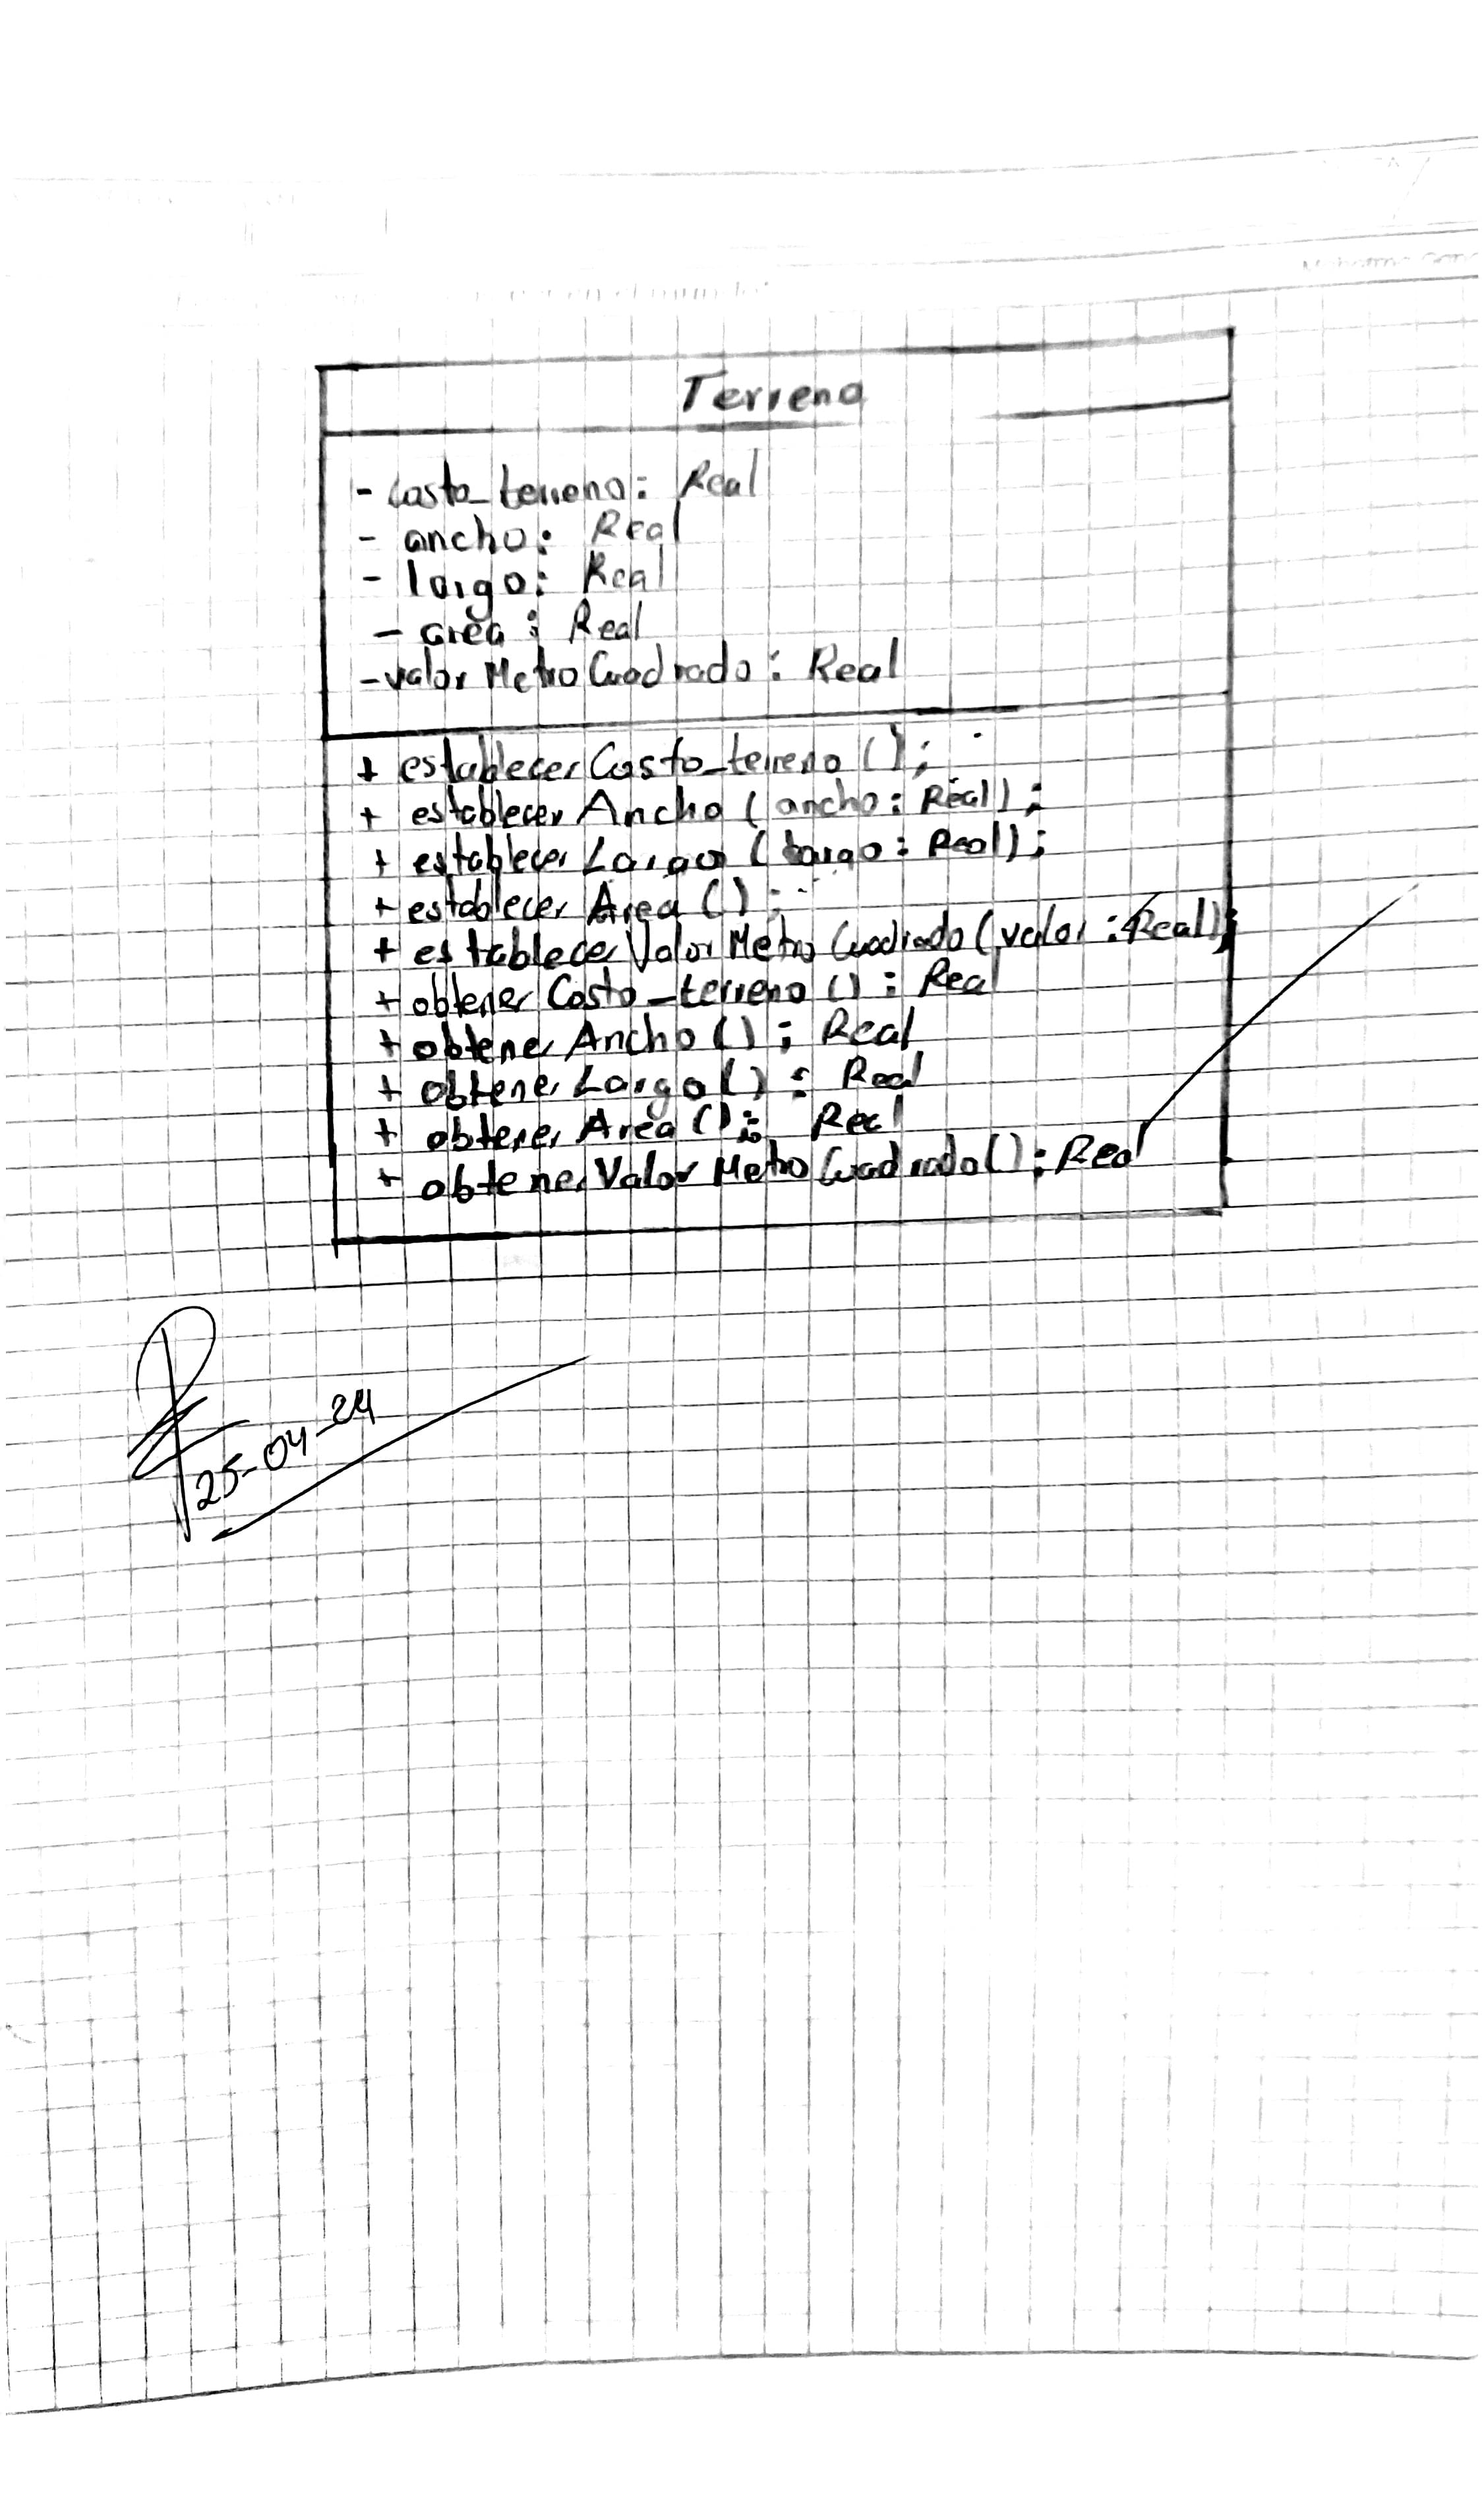 Terreno
- costo_terreno: Real
- ancho: Real
- largo: Real
- area: Real
- valor Metro Cuadrado: Real
+ establecer Costo_terreno ();
+ establecer Ancho (ancho: Real);
+ establecer Largo (largo: Real);
+ establecer Area ();
+ establecer Valor Metro Cuadrado (valor: Real);
+ obtener Costo_terreno (): Real
+ obtener Ancho (): Real
+ obtener Largo (): Real
+ obtener Area (): Real
+ obtener Valor Metro Cuadrado (): Real
25-04-24